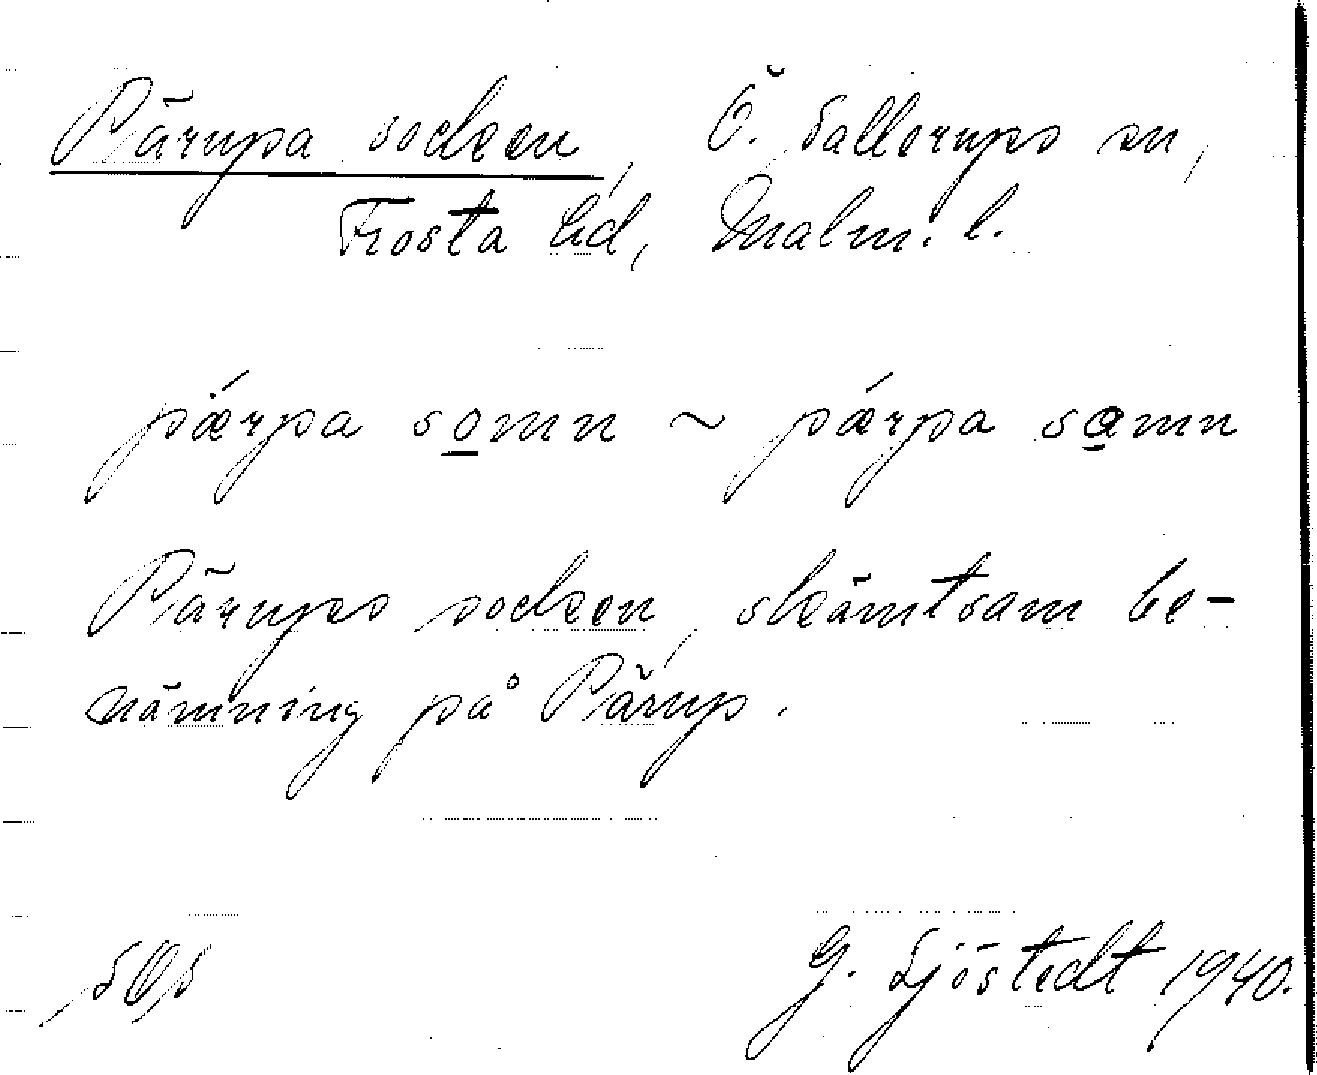 Pärupa socken, Ö. Sallerups sn,
Frosta hd, Malm. l.
pǽrpa somn ~ pǽrpa samn
Pärups socken, skämtsam be-
nämning på Pärup.
SOS
G. Sjöstedt 1940.